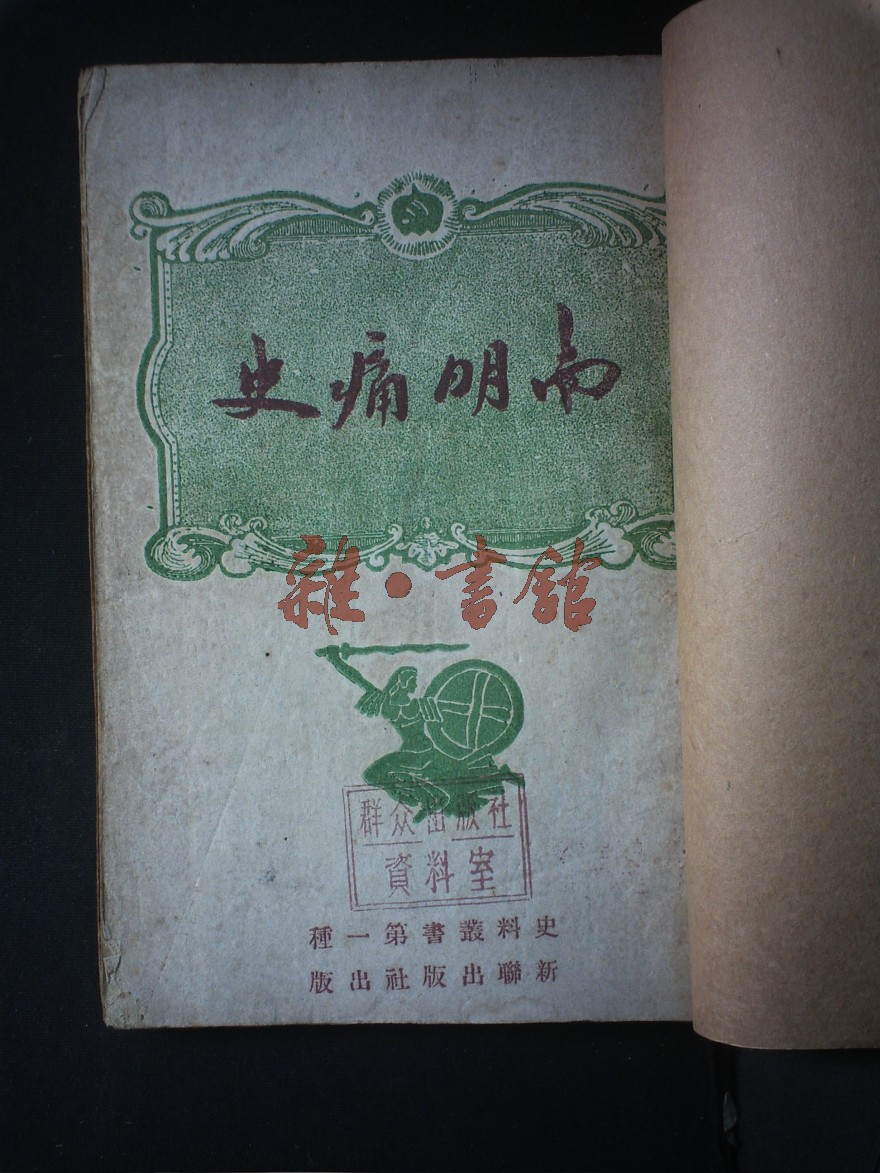 南明痛史
雜·書舘
群众出版社
資料室
史料叢書第一種
新聯出版社出版